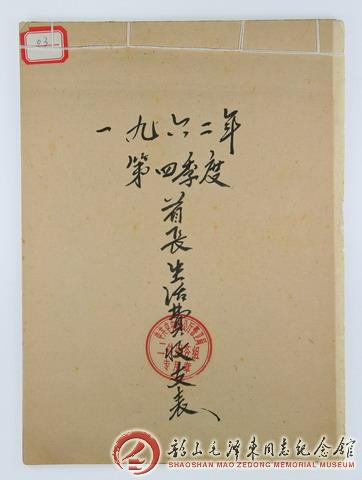 23
一九六二年
第四季度
首长生活费收支表
韶山毛泽东同志纪念馆
SHAOSHAN MAO ZEDONG MEMORIAL MUSEUM